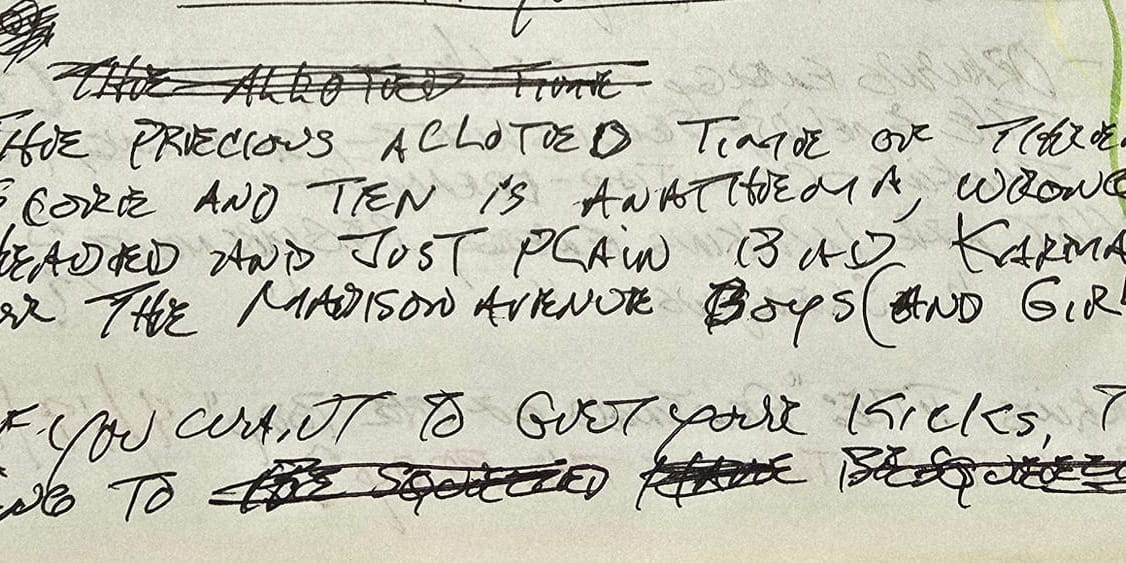 THE ALLOTED TIME
THE PRECIOUS ALLOTED TIME OF THREE
SCORE AND TEN IS ANATHEMA, WRONG
HEADED AND JUST PLAIN BAD KARMA
THE MADISON AVENUE BOYS (AND GIRL
IF YOU WANT TO GET YOUR KICKS,
TO